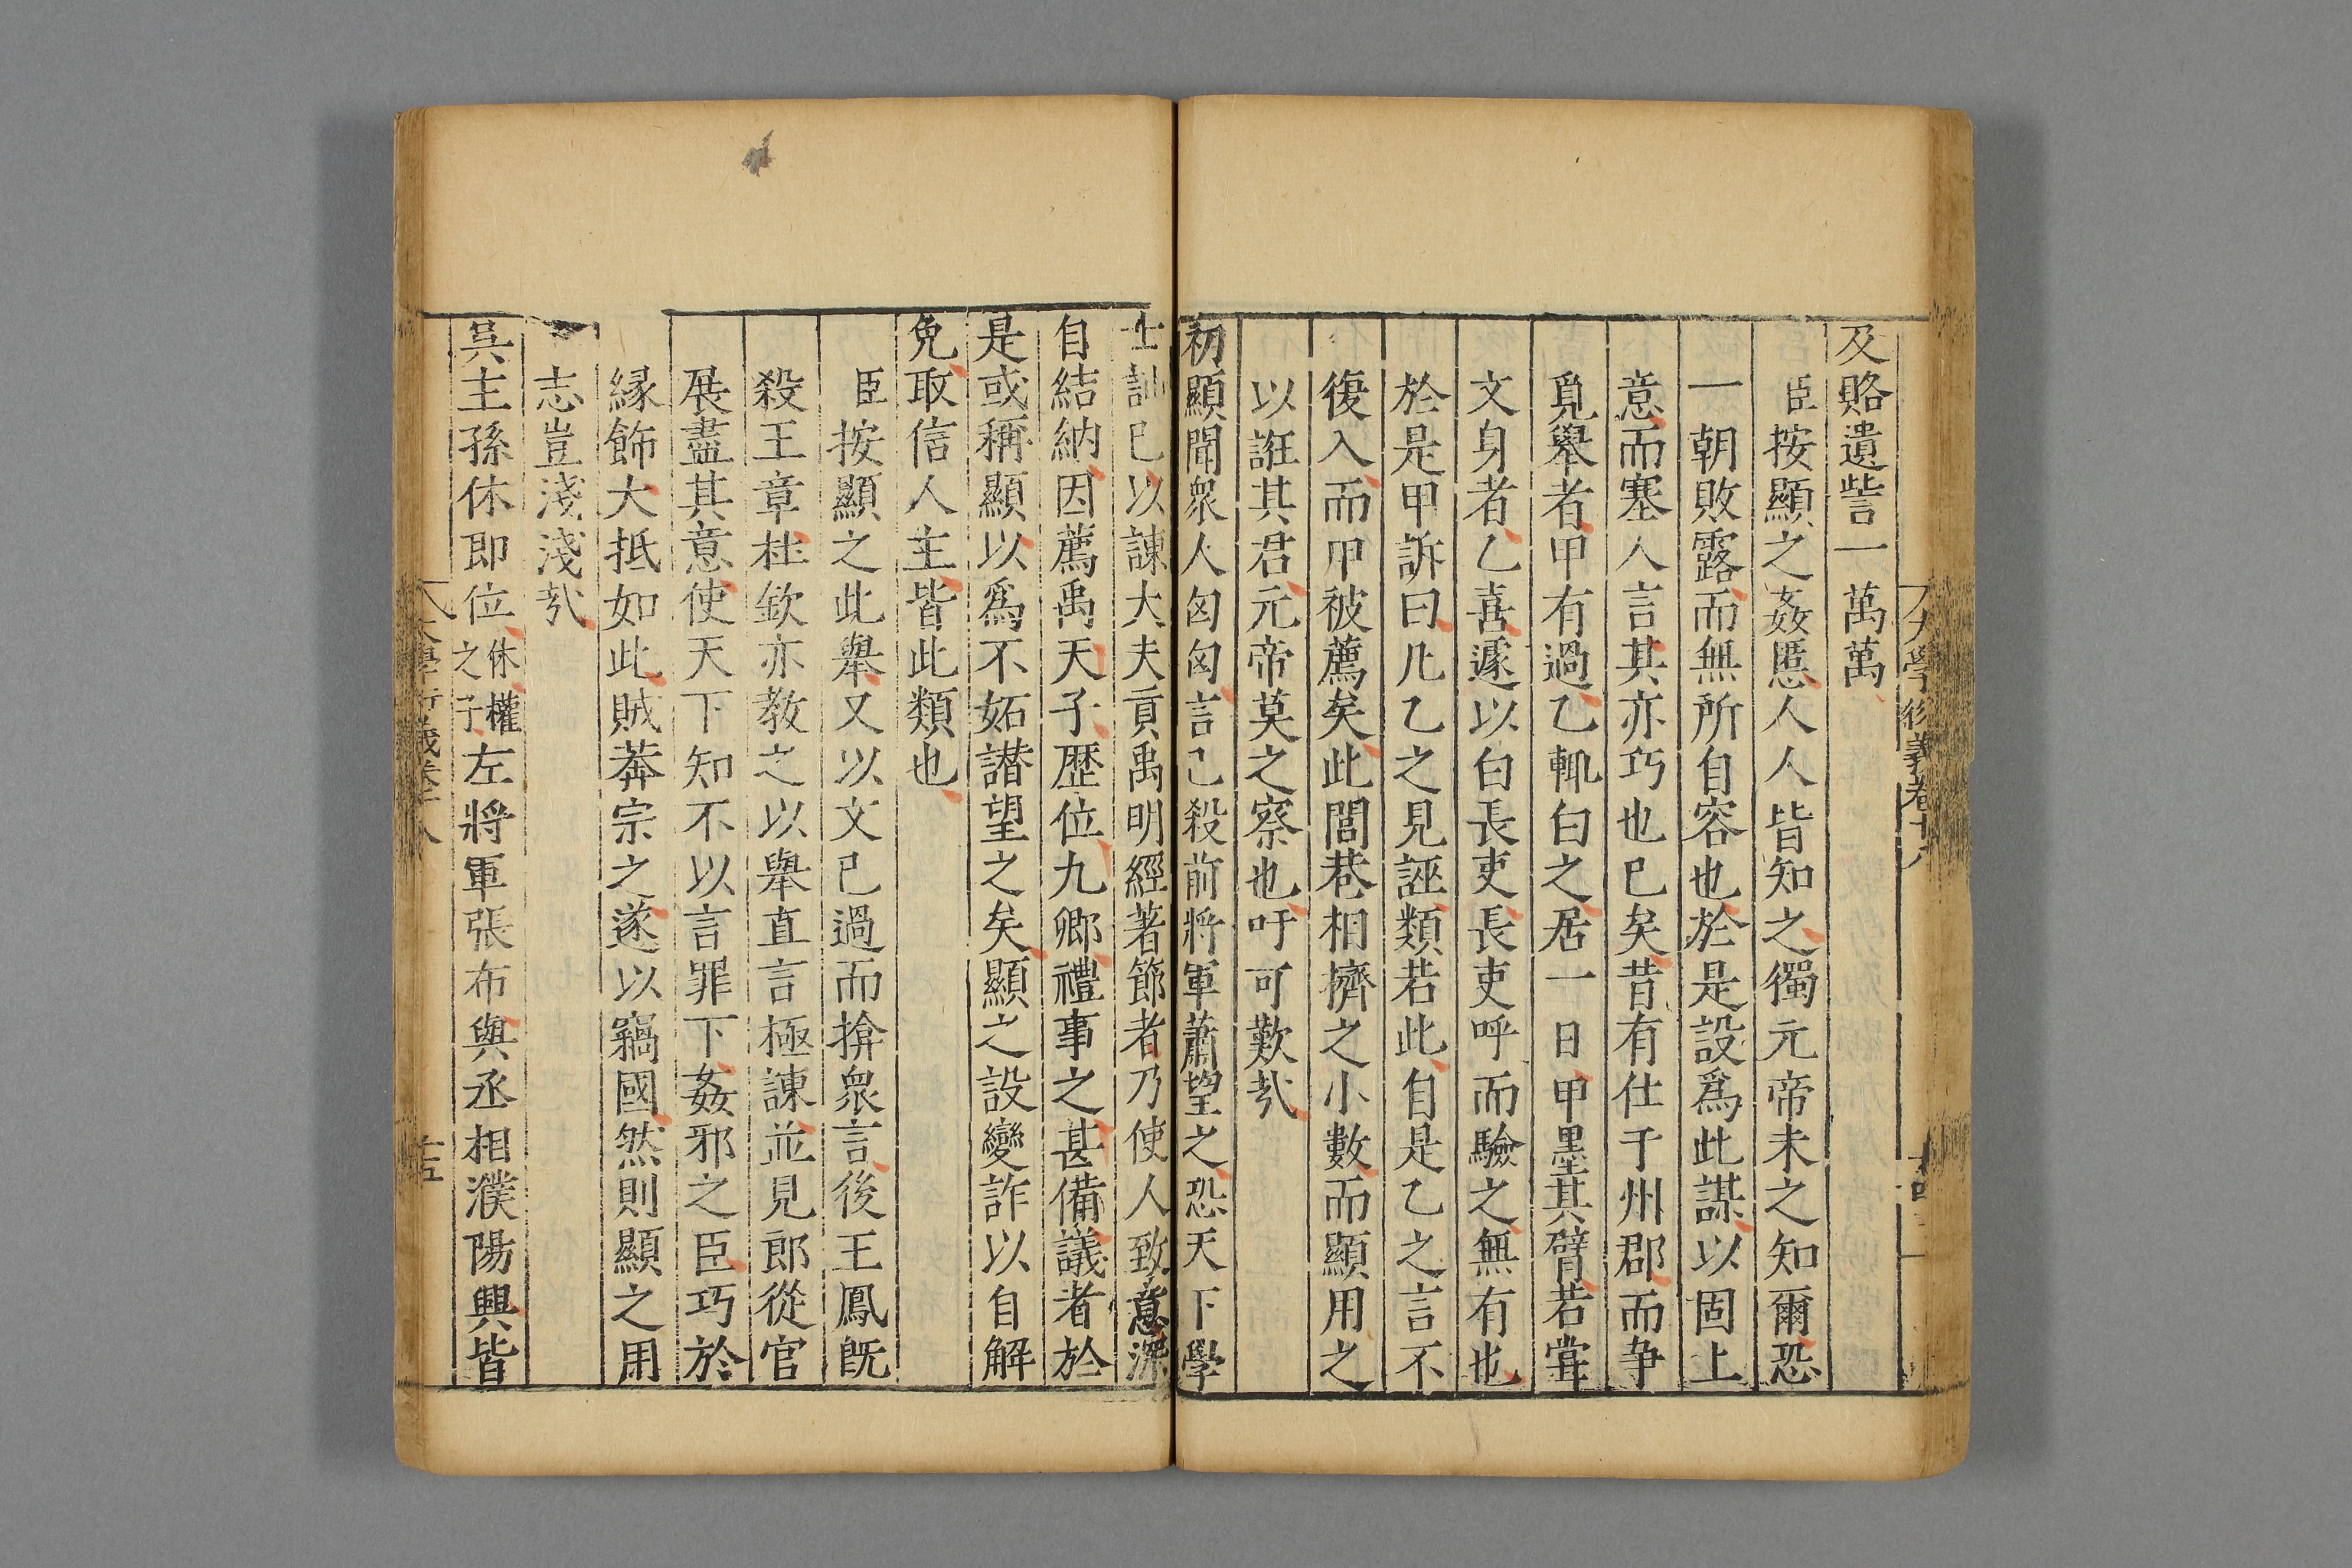 大學衍義卷十八
十四
及賂遺訾一萬萬
臣按顯之姦慝人人皆知之獨元帝未之知爾恐
一朝敗露而無所自容也於是設爲此謀以固上
意而塞人言其亦巧也已矣昔有仕于州郡而爭
覓舉者甲有過乙輒白之居一日甲墨其臂若嘗
文身者乙喜遽以白長吏長吏呼而驗之無有也
於是甲訴曰凡乙之見誣類若此自是乙之言不
復入而甲被薦矣此閭巷相擠之小數而顯用之
以誑其君元帝莫之察也吁可歎㢤
初顯聞衆人匈匈言己殺前將軍蕭望之恐天下學
士訕已以諫大夫貢禹明經著節者乃使人致意深
自結納因薦禹天子歷位九卿禮事之甚備議者於
是或稱顯以爲不妬譖望之矣顯之設變詐以自解
免取信人主皆此類也
臣按顯之此舉又以文已過而揜衆言後王鳳旣
殺王章杜欽亦教之以舉直言極諫並見郎從官
展盡其意使天下知不以言罪下姦邪之臣巧於
緣飾大抵如此賊莽宗之遂以竊國然則顯之用
志豈淺淺㢤
吳主孫休即位休權之子左將軍張布與丞相濮陽興皆
大學衍義卷十八
十五